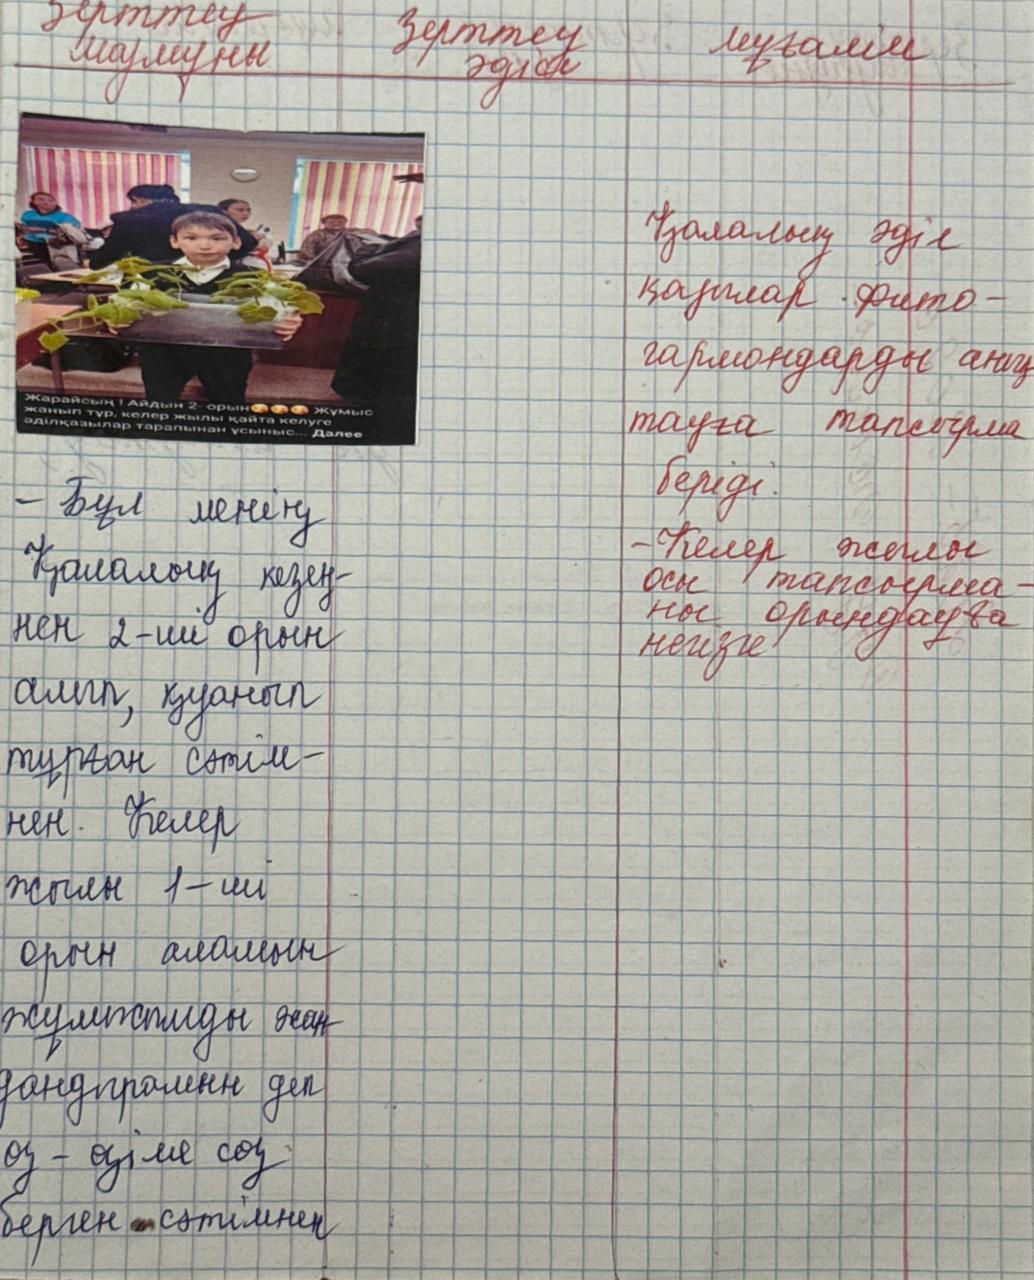 Зерттеу
мазмұны
Зерттеу
әдісі
мұғалім
Жарайсың ! Айдын 2- орын🥳🥳🥳 Жұмыс
жанып тұр, келер жылы қайта келуге
әділқазылар тарапынан ұсыныс... Далее
– Бұл менің
Қалалық кезең-
нен 2-ші орын
алып, қуанып
тұрған сәтім-
нен. Келер
жылы 1-ші
орын аламын
жұмысымды жан
дандырамын деп
өз - өзіме сөз
берген сәтімнен
Қалалық әділ
қазылар фито-
гармондарды анық
тауға тапсырма
беріді.
– Келер жылы
осы тапсырма-
ны орындауға
негізге